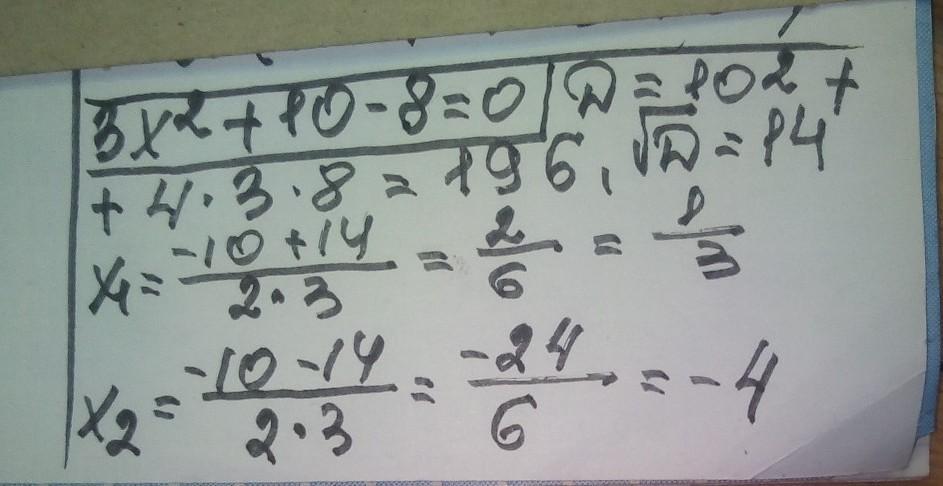 3x²+10-8=0 D=10²+
+4·3·8=196, √D=14
x₁=(-10+14)/(2·3)=2/6=1/3
x₂=(-10-14)/(2·3)=-24/6=-4